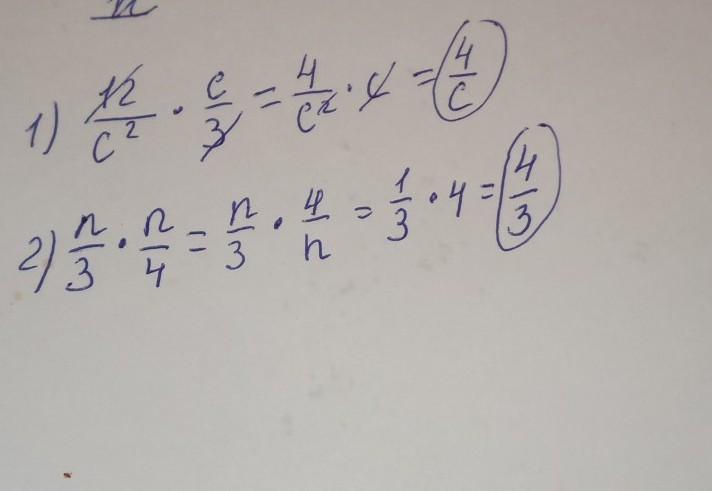 n
1) 12/c² · c/3 = 4/c² · c = 4/c
2) n/3 · n/4 = n/3 · 4/n = 1/3 · 4 = 4/3